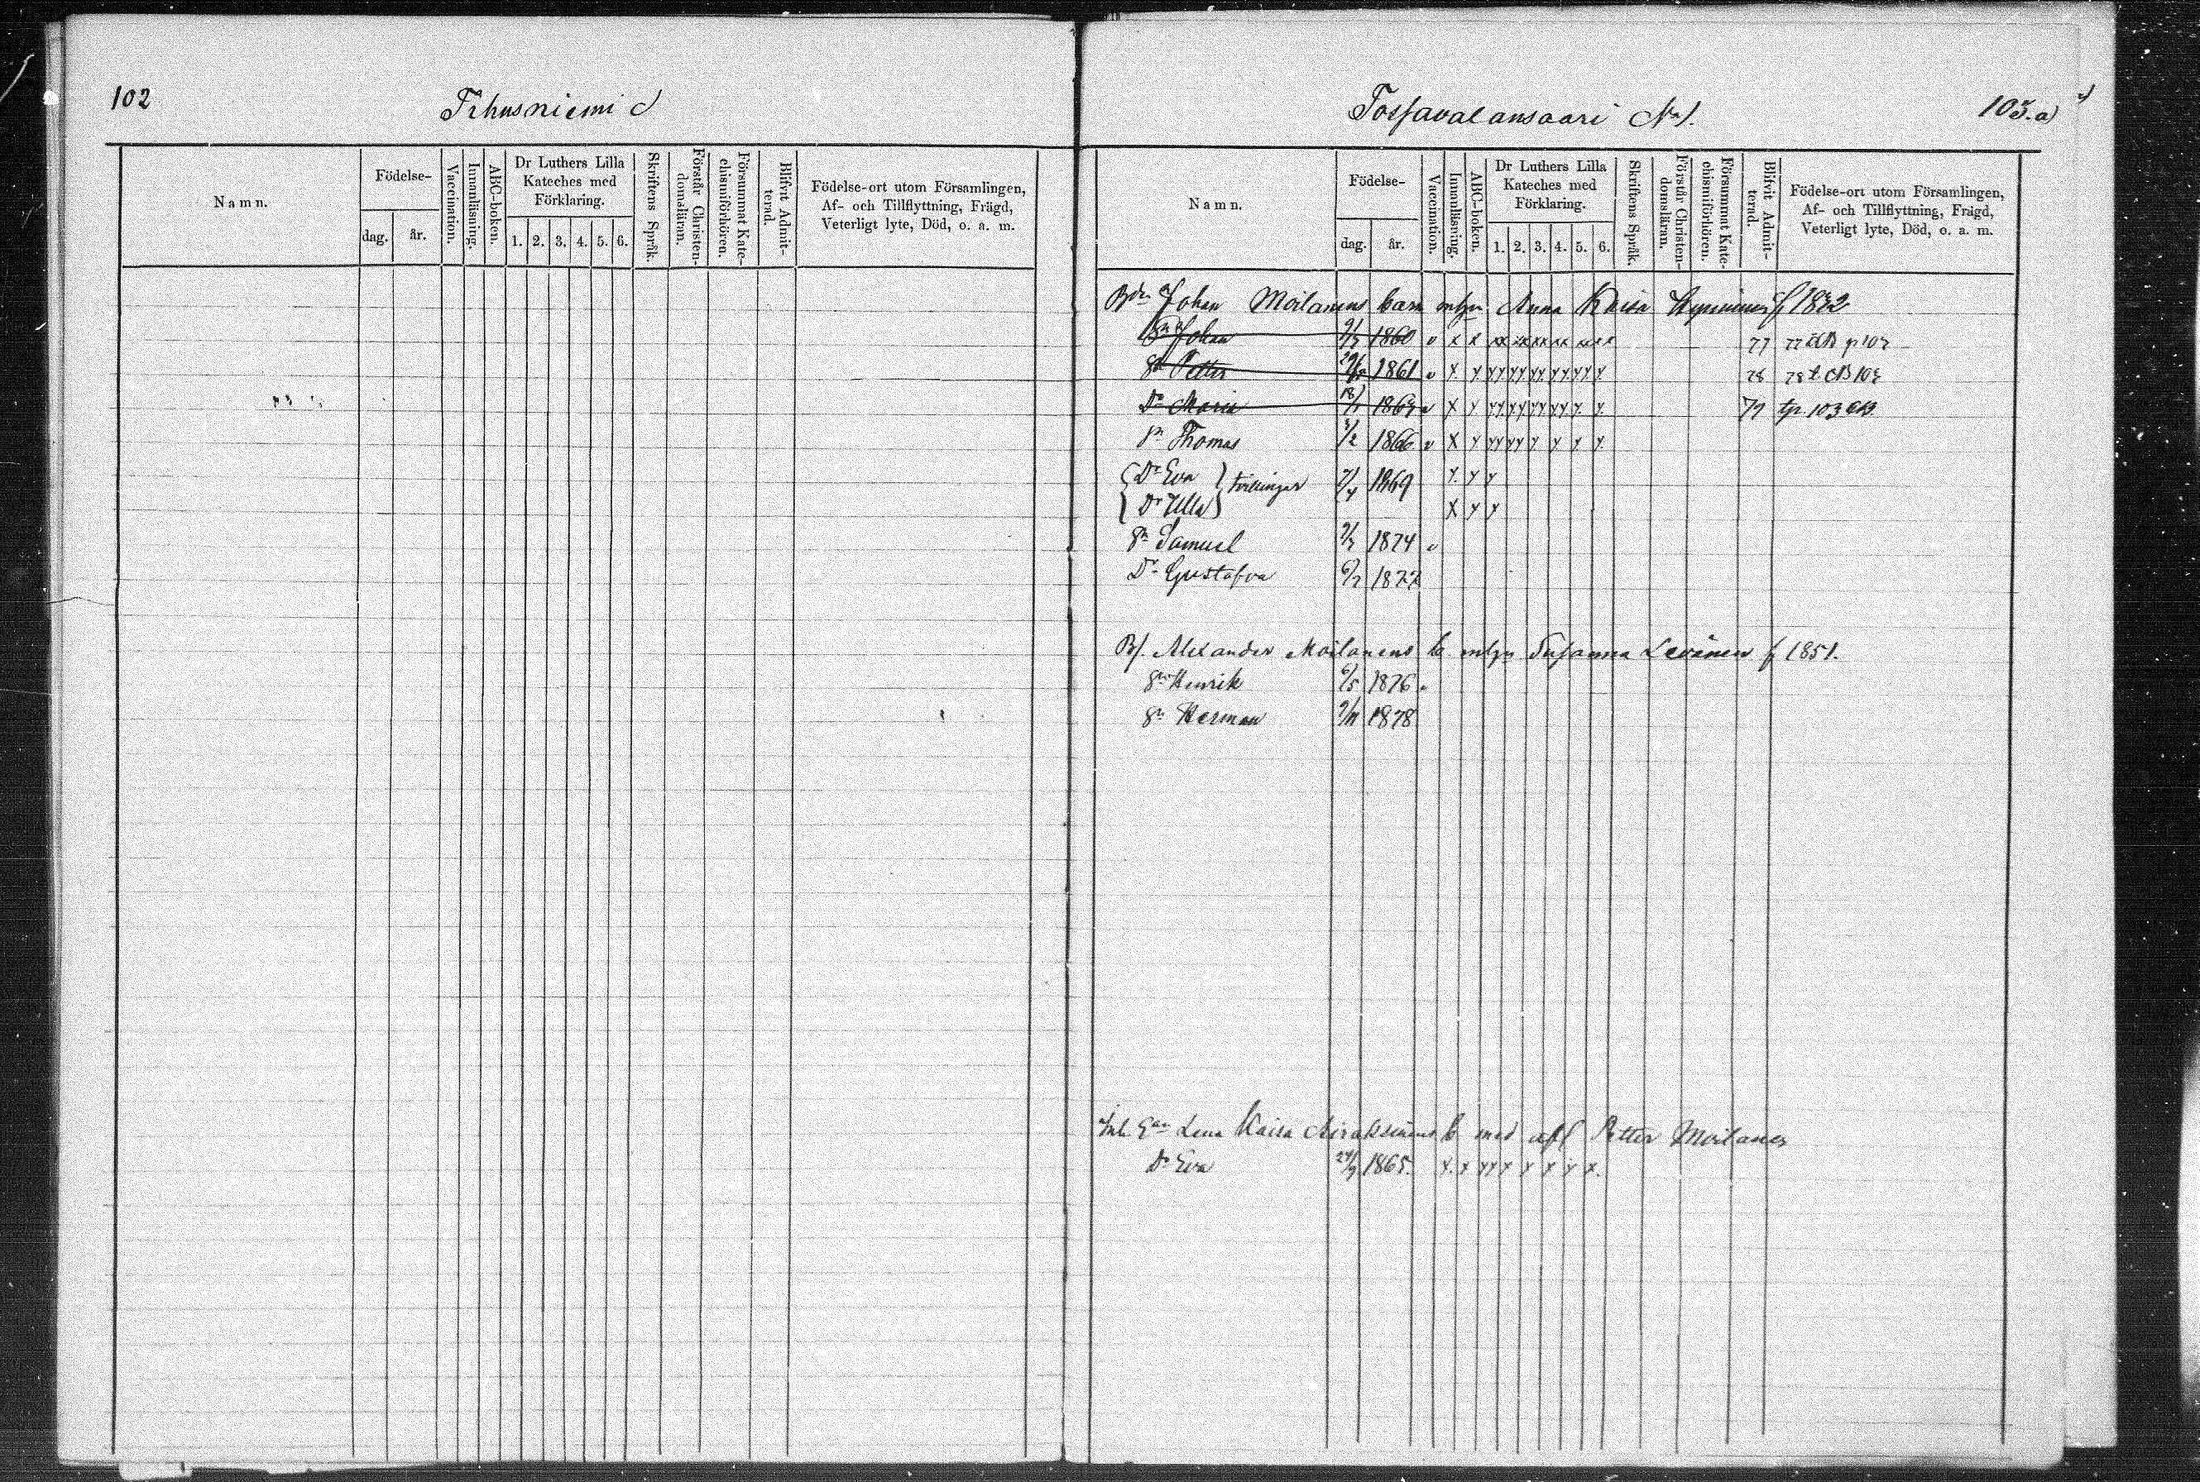 102
Namn.
Födelse-
dag.
år.
Vaccination.
Innanläsning.
ABC-boken.
Dr Luthers Lilla
Kateches med
Förklaring.
1. 2. 3. 4. 5. 6.
Skriftens Språk.
Förstår Christen-
domsläran.
Försummat Kate-
chismiförhören.
Blifvit Admit-
terad.
Födelse-ort utom Församlingen,
Af- och Tillflyttning, Frägd,
Veterligt lyte, Död, o. a. m.
Tossavalansaari No 1.
103.a)
Namn.
Födelse-
dag.
år.
Vaccination.
Innanläsning.
ABC-boken.
Dr Luthers Lilla
Kateches med
Förklaring.
1. 2. 3. 4. 5. 6.
Skriftens Språk.
Förstår Christen-
domsläran.
Försummat Kate-
chismiförhören.
Blifvit Admit-
terad.
Födelse-ort utom Församlingen,
Af- och Tillflyttning, Frägd,
Veterligt lyte, Död, o. a. m.
Johan Moilanens barn Anna Kaisa f 1832
Sn Johan 1860 v x x xx xx xx xx xx x x 77
Sn Petter 1861 v x x xx xx xx xx xx x 78
Dr Maria 18/1 v x x xx xx xx xx x x 79
Sn Thomas 1/2 1866 v x x xx xx x x x x
Dr Eva tvillingar 1869 x x x
Dr Ulla x x x
Sn Samuel 1874 v
Dr Gustafva 1877
Alexander Moilanens b Susanna Levänen f 1851.
Sn Henrik 6/5 1876 v
Sn Herman 9/11 1878
Lena Kaisa b med Petter Moilanen
Dr Eva 24/9 1865. x x xx x x x x x